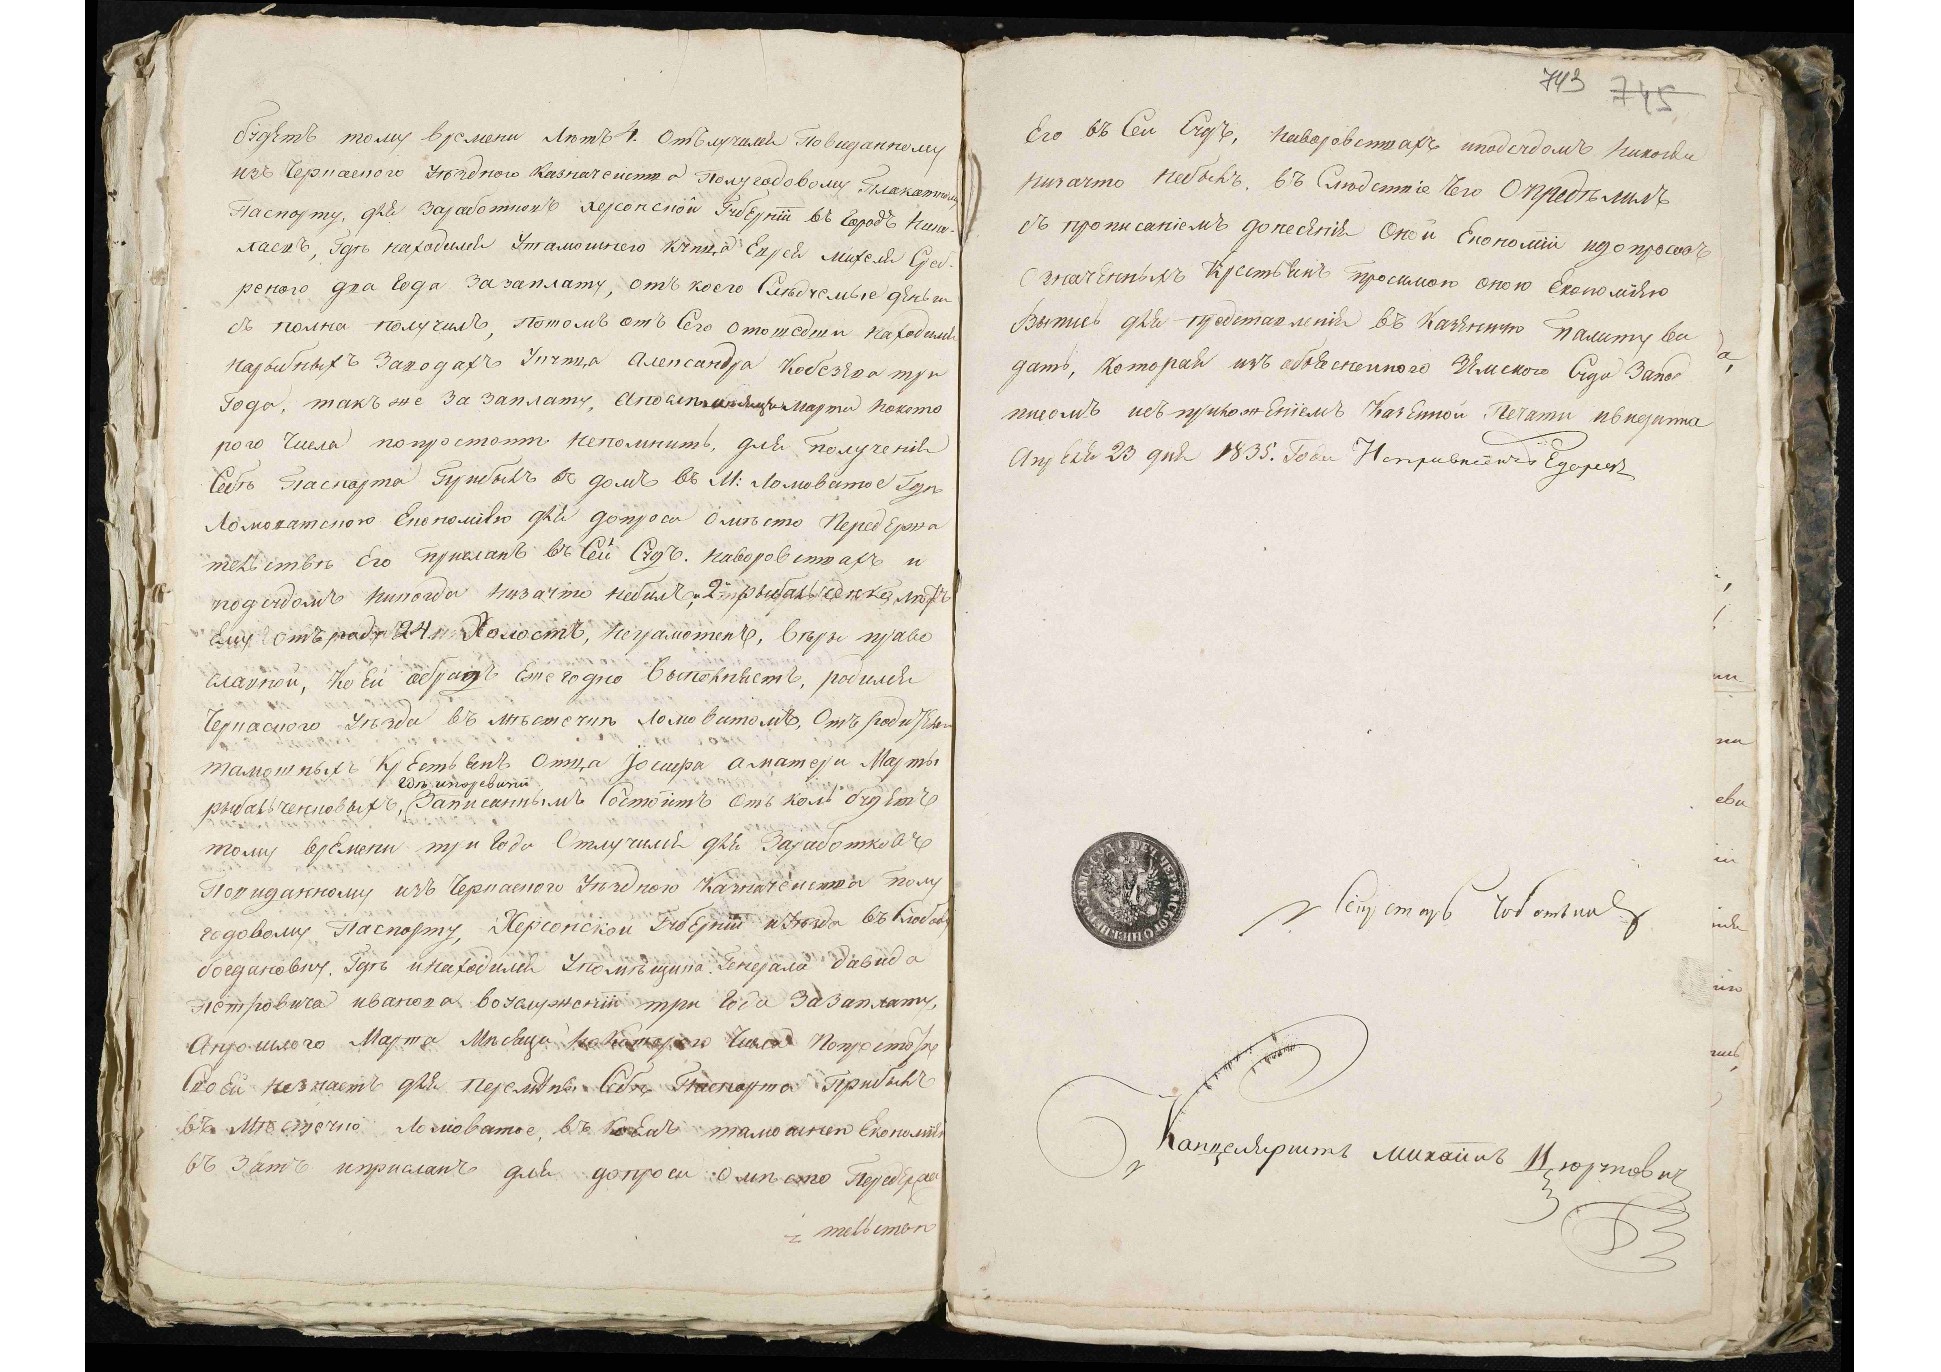 будетъ тому времени лѣтъ 4. отълучился повиданному
изъ Черкаского уѣзднаго казначейства полугодовому плакатному
паспорту, для заработковъ Херсонской губерніи въ городъ Нико-
лаевъ, гдѣ находился утамошнего купца Еврея
два года за заплату, отъ коего слѣдуемые деньги
съ полна получилъ, потомъ отъ сего отошедши находился
нарыбныхъ заводахъ укупца Александра три
года, такъ же за заплату, марта некото
рого числа попростотѣ непомнитъ, для полученія
себѣ паспорта прибылъ въ домъ въ М: Ломоватое гдѣ
Ломоватскою Економіею для допроса омѣсто передержа
тельствѣ его присланъ въ сей судъ. наворовствахъ и
подсудомъ никогда низачто небылъ, 2й лѣтъ
ему отъ роду 24. холостъ, неграмотенъ, вѣры право
славной, коей обрядъ ежегодно выполняетъ, родился
Черкаского уѣзда въ мѣстечкѣ Ломоватомъ, отъ родителей
тамошныхъ крестьянъ отца Іосифа аматери Марты
гдѣ иподревизіи
рыбальченковыхъ, записаннымъ состоитъ отъ коль будетъ
тому времени три года отлучился для заработковъ
повиданному изъ Черкаского уѣздного казначейства полу
годовому паспорту, Херсонской губерніи иуѣзда въ слободу
богдановку. гдѣ инаходился упомѣщика генерала давида
петровича иванова воуслуженіи три года зазаплату,
апрошлого марта мѣсяца некоторого числа попростотѣ
своей незнаетъ для перемѣны себѣ паспорта прибылъ
въ мѣстечко Ломоватое, въ коемъ тамошнею Економіею
въ зятъ иприсланъ для допроса омѣсто передержа
тельствѣ
743 745
его въ сей судъ, наворовствахъ иподсудомъ никогда
низачто небылъ. въ слѣдствіе чего опредѣлилъ
съ прописаніемъ донесенія оной Економіи идопросовъ
означенныхъ крестьянъ просимою оною Економіею
выпись для представленія въ казенную палату вы
дать, которая изъ объясненного земского суда запод
писомъ исъприложеніемъ казенной печати ивидатна
Апреля 23 дня 1835. Года
Канцеляристъ михаилъ